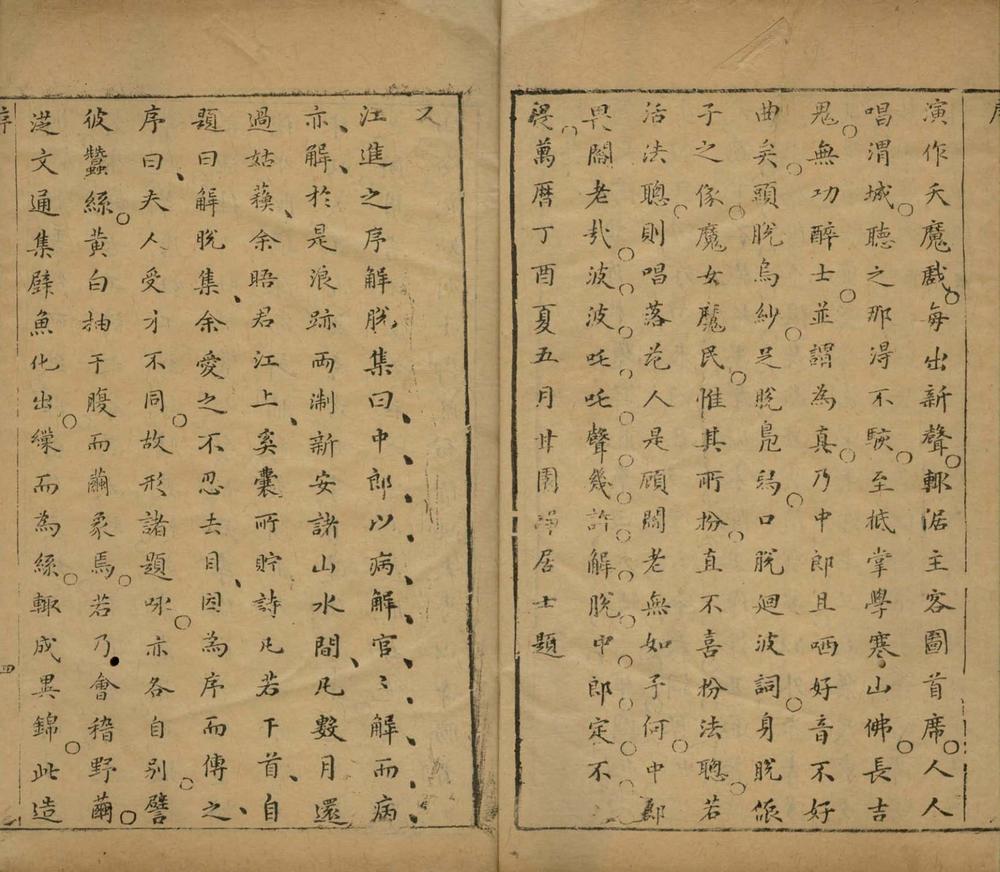 序
演作天魔戲每出新聲輙居主客圖首席人人
唱渭城聽之那淂不駭至抵掌學寒山佛長吉
鬼無功醉士並謂為真乃中郎且哂好音不好
曲矣頭脫烏紗足脫鳬舄口脫廻波詞身脫㑊
子之像魔女魔民惟其所扮直不喜扮法聰若
活法聰則唱落花人是顧閻老無如子何中郎
畏閻老㦲波波吒吒聲幾許解脫中郎定不
萬曆丁酉夏五月廿園居士題
又
江進之序解脫集曰中郎以病解官〻解而病
亦解於是浪跡两淛新安諸山水間凡數月還
過姑蘓余晤君江上奚囊所貯詩凡若干首自
題曰解脫集余愛之不忍去目因為序而傳之
序曰夫人受才不同故形諸題咏亦各自別譬
彼蠶絲黃白抽于腹而繭象焉若乃會稽野繭
從文通集壁魚化出繅而為絲輙成異錦此造
序
四